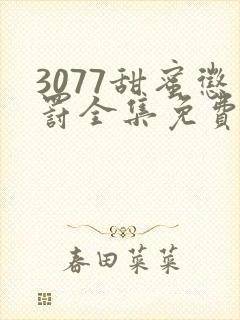 3077甜蜜懲
罚全集免費
春田菜菜